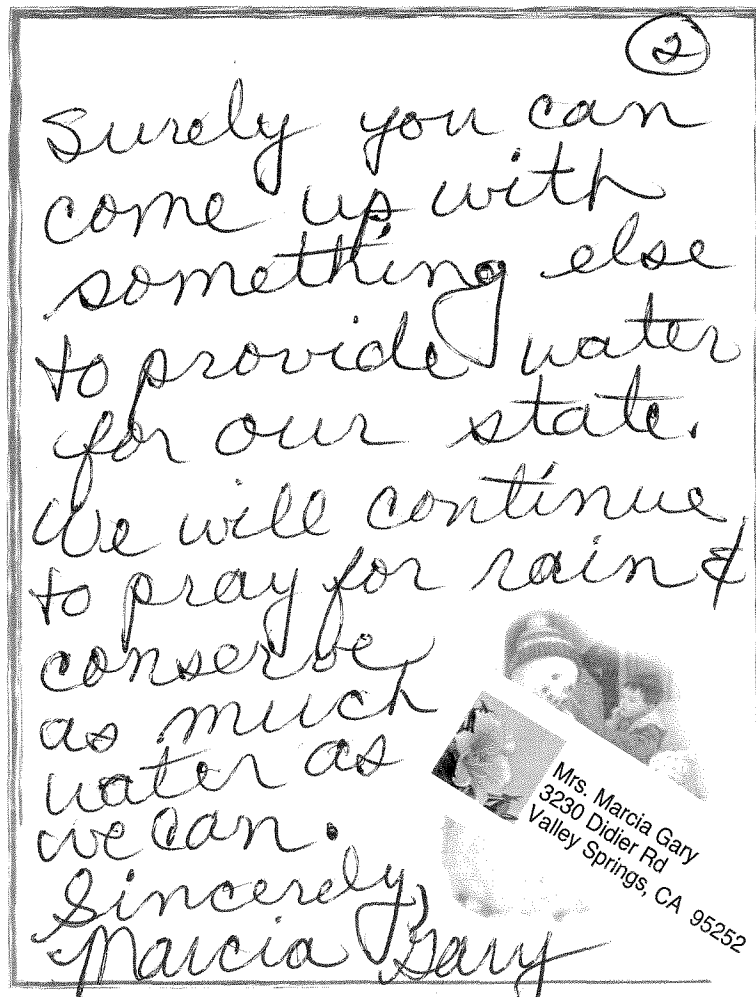 2
Surely you can
come up with
something else
to provide water
for our state.
We will continue
to pray for rain &
conserve
as much
water as
we can.
Sincerely,
Marcia Gary
Mrs. Marcia Gary
3230 Didier Rd
Valley Springs, CA 95252